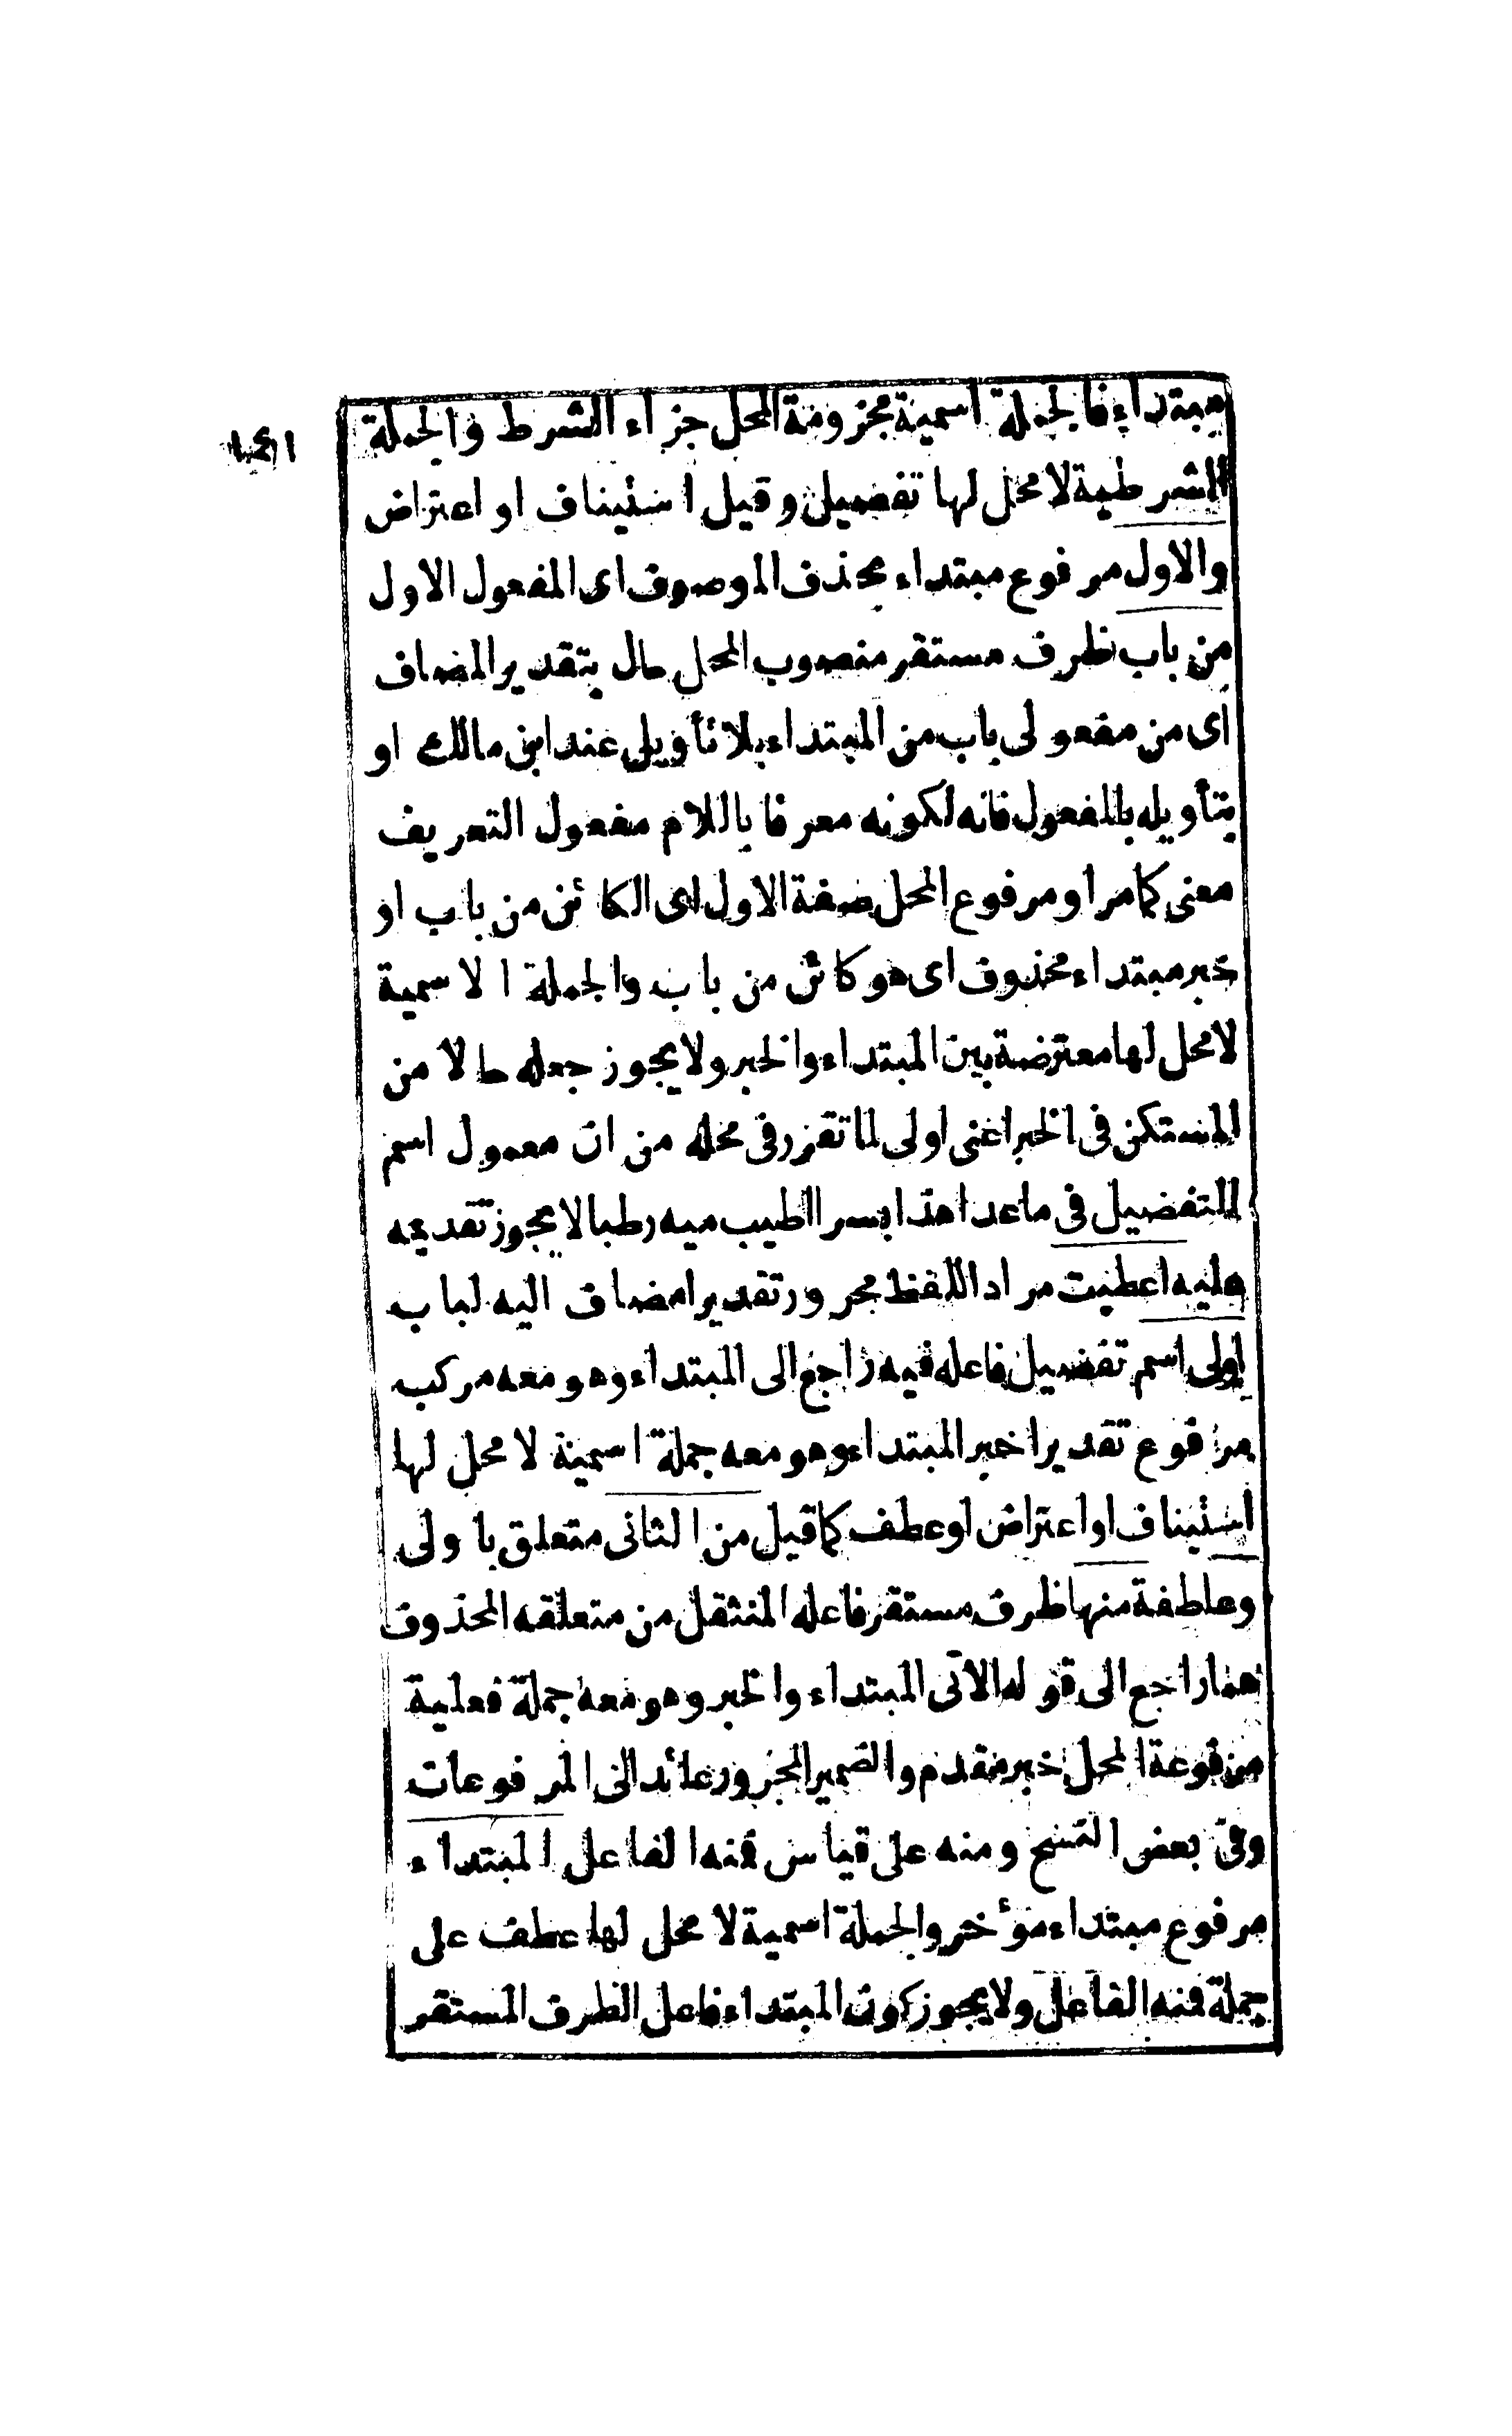 مبتداء فالجملة اسمية مجزومة المحل جزاء الشرط والجملة
الشرطية لا محل لها تفصيل وقيل استيناف او اعتراض
والاول مرفوع مبتداء بحذف الموصوف اى المفعول الاول
من باب ظرف مستقر منصوب المحل حال بتقدير المضاف
اى من مفعولى باب من المبتداء بلا تأويل عند ابن مالك او
بتأويله بالمفعول فانه لكونه معرفا باللام مفعول التعريف
معنى كما مر او مرفوع المحل صفة الاول اى الكائن من باب او
خبر مبتداء محذوف اى هو كائن من باب والجملة الاسمية
لا محل لها معترضة بين المبتداء والخبر ولا يجوز جعله حالا من
المستكن فى الخبر اعنى اولى لما تقرر فى محله من ان معمول اسم
التفضيل فى ما عدا هذا بسرا اطيب منه رطبا لا يجوز تقديمه
عليه اعطيت مراد اللفظ مجرور تقديرا مضاف اليه لباب
اولى اسم تفضيل فاعله فيه راجع الى المبتداء وهو معه مركب
مرفوع تقديرا خبر المبتداء وهو معه جملة اسمية لا محل لها
استيناف او اعتراض او عطف كما قيل من الثانى متعلق باولى
وعاطفة منها ظرف مستقر فاعله المنتقل من متعلقه المحذوف
هنا راجع الى قوله الآتى المبتداء والخبر وهو معه جملة فعلية
مرفوعة المحل خبر مقدم والضمير المجرور عائد الى المرفوعات
وفى بعض النسخ ومنه على قياس فمنه الفاعل المبتداء
مرفوع مبتداء مؤخر والجملة اسمية لا محل لها عطف على
جملة فمنه الفاعل ولا يجوز كون المبتداء فاعل الظرف المستقر